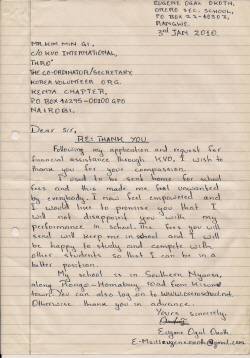 EUGENE OGAL OKOTH,
ORERO SEC. SCHOOL,
PO BOX 22-40303,
RANGWE.
3rd JAN 2010.
MR. KIM MIN GI,
C/O KVO INTERNATIONAL,
THRO'
THE CO-ORDINATOR/SECRETARY
KOREA VOLUNTEER ORG.
KENYA CHAPTER,
P.O BOX 10295-00100 GPO
NAIROBI.
Dear Sir,
RE: THANK YOU
Following my application and request for
financial assistance through KVO, I wish to
thank you for your compassion.
I used to be sent home for school
fees and this made me feel unwanted
by everybody. I now feel empowered and
I would like to promise you that I
will not disappoint you with my
performance in school. The fees you will
send will keep me in school and I will
be happy to study and compete with
other students so that I can be in a
better position.
My school is in Southern Nyanza,
along Rongo-Homabay road from Kisumu
town. You can also log on to
Otherwise thank you in advance.
Yours sincerely
Eugene Ogal Okoth